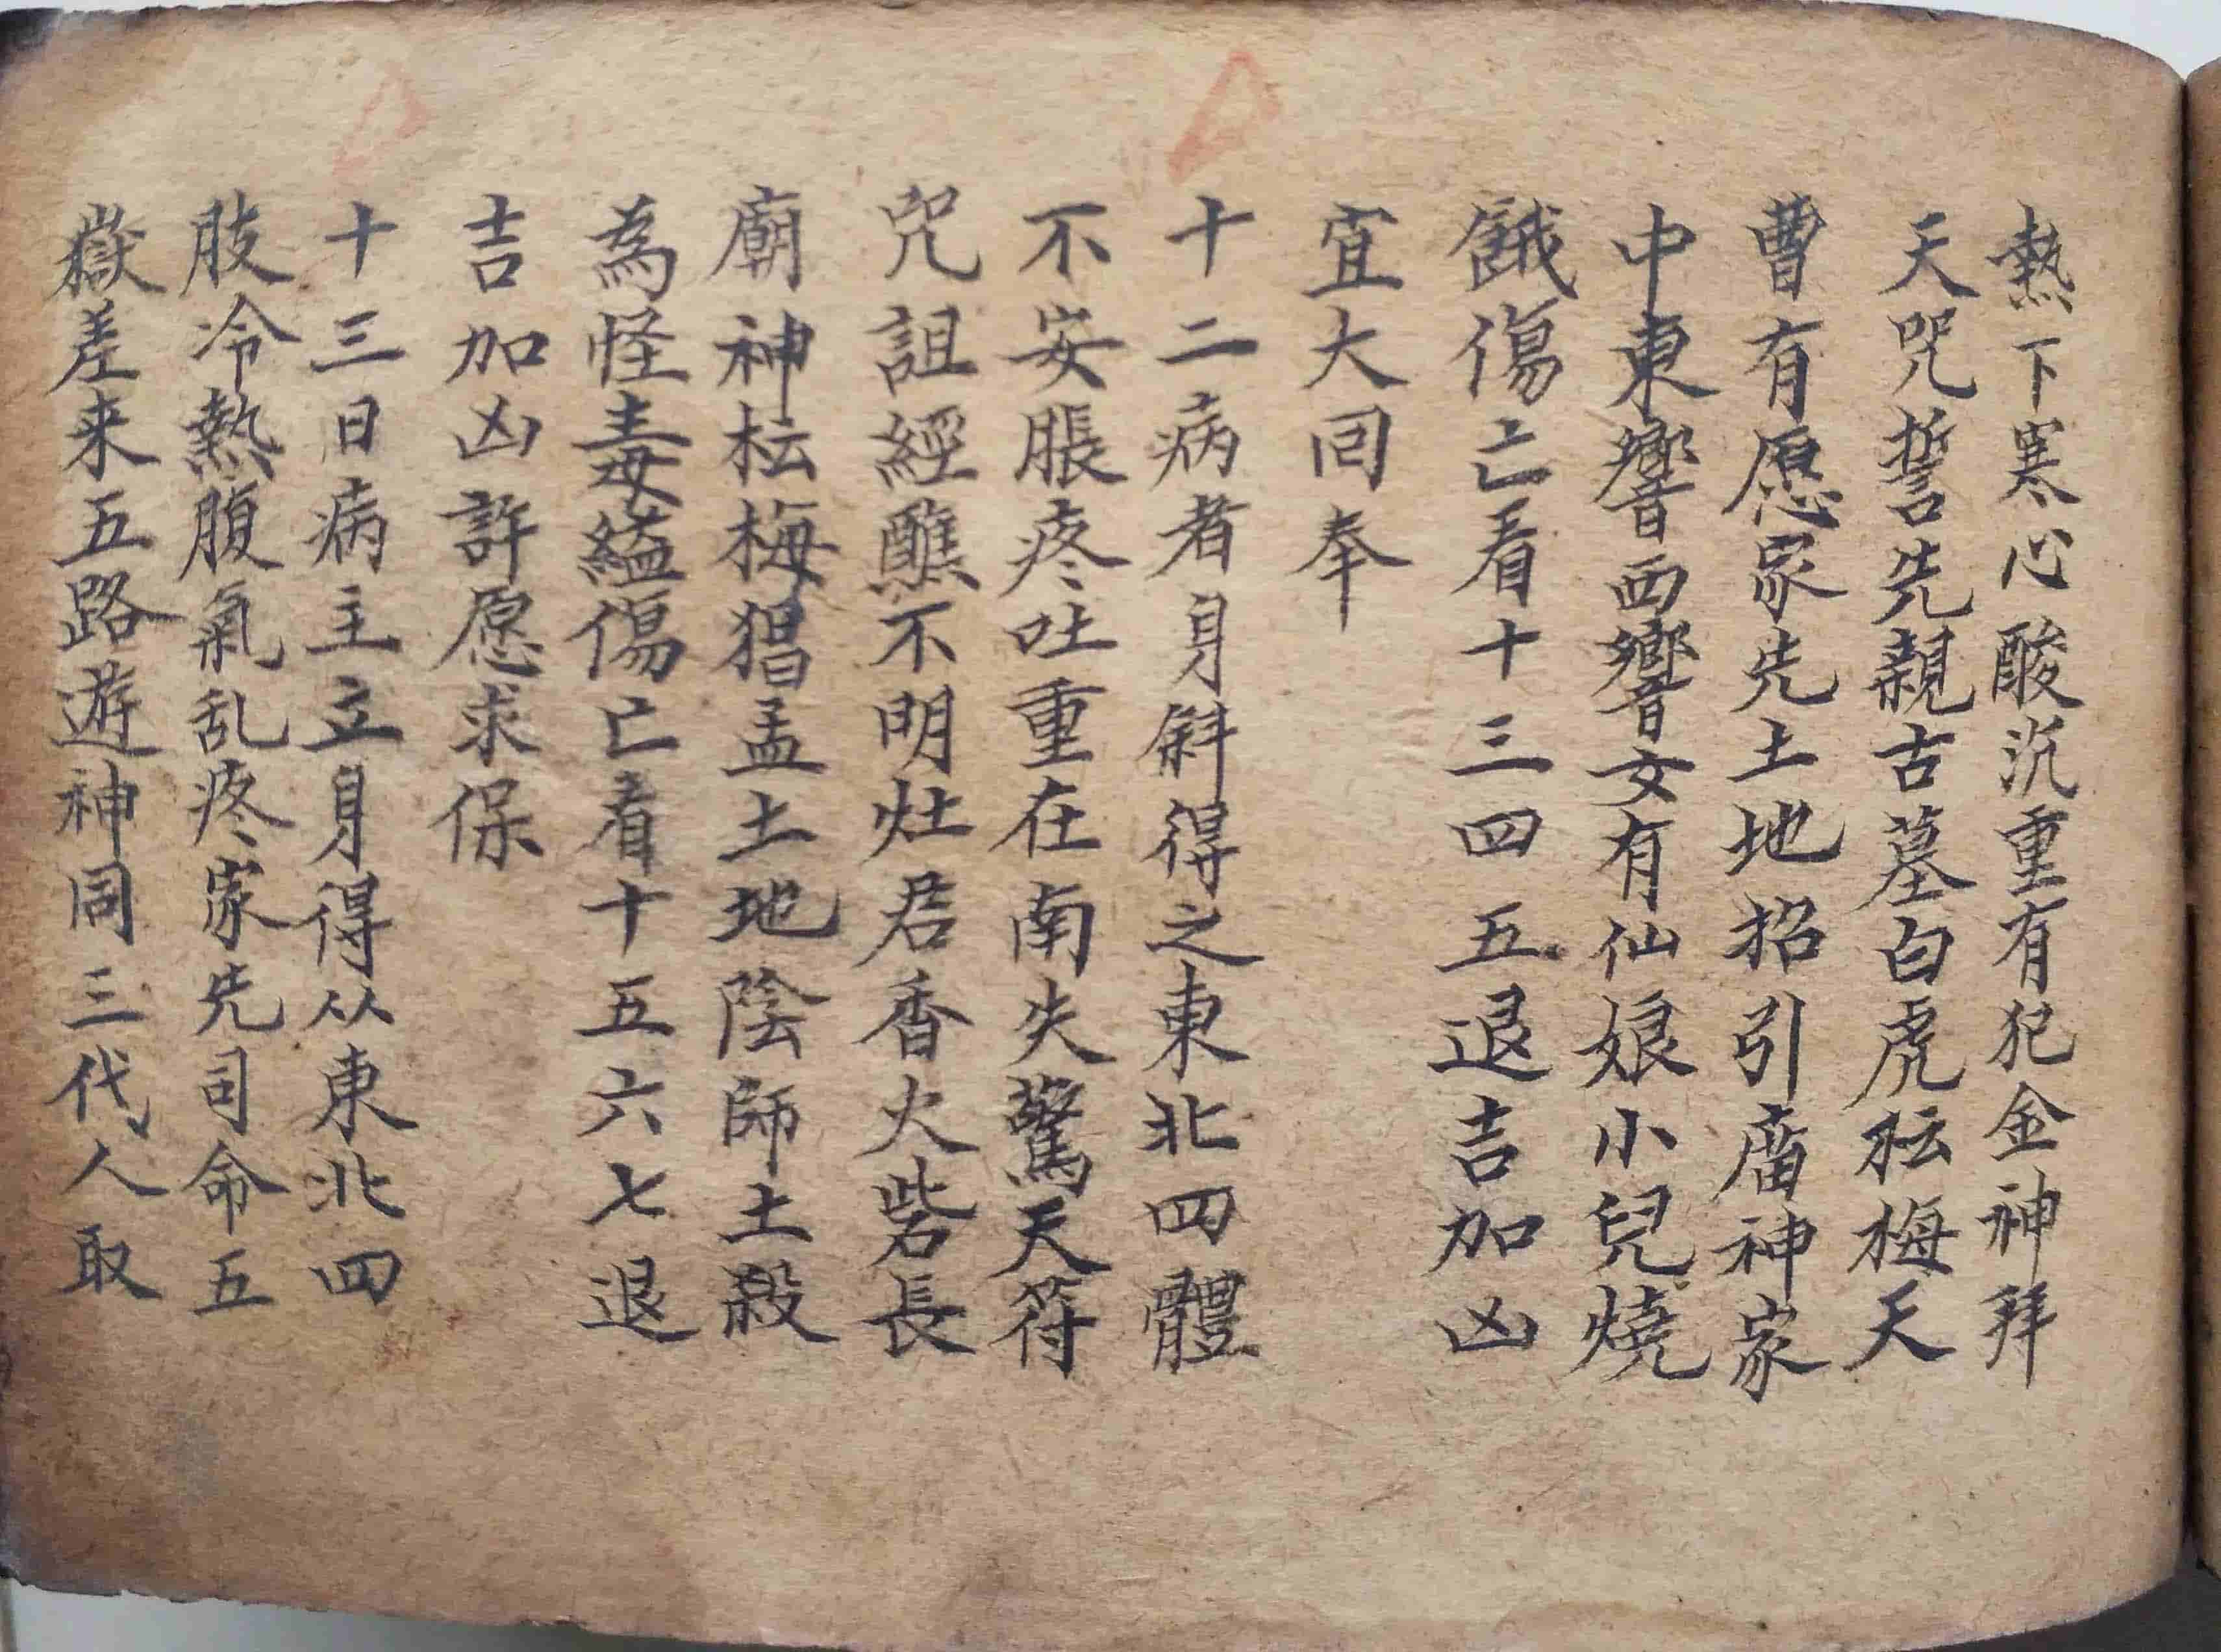 熱下寒心酸沉重有犯金神拜
天咒誓先親古墓白虎枟梅天
曹有愿家先土地招引庿神家
中東響西響女有仙娘小兒燒
餓傷亡看十三四五退吉加凶
宜大囘奉
十二病者身斜得之東北四體
不安脹疼吐重在南失驚天符
咒詛經醮不明灶君香火砦長
廟神枟梅猖孟土地陰師土殺
為怪毒縊傷亡看十五六七退
吉加凶許愿求保
十三日病主立身得从東北四
肢冷熱腹氣乱疼家先司命五
嶽差来五路遊神同三代人取